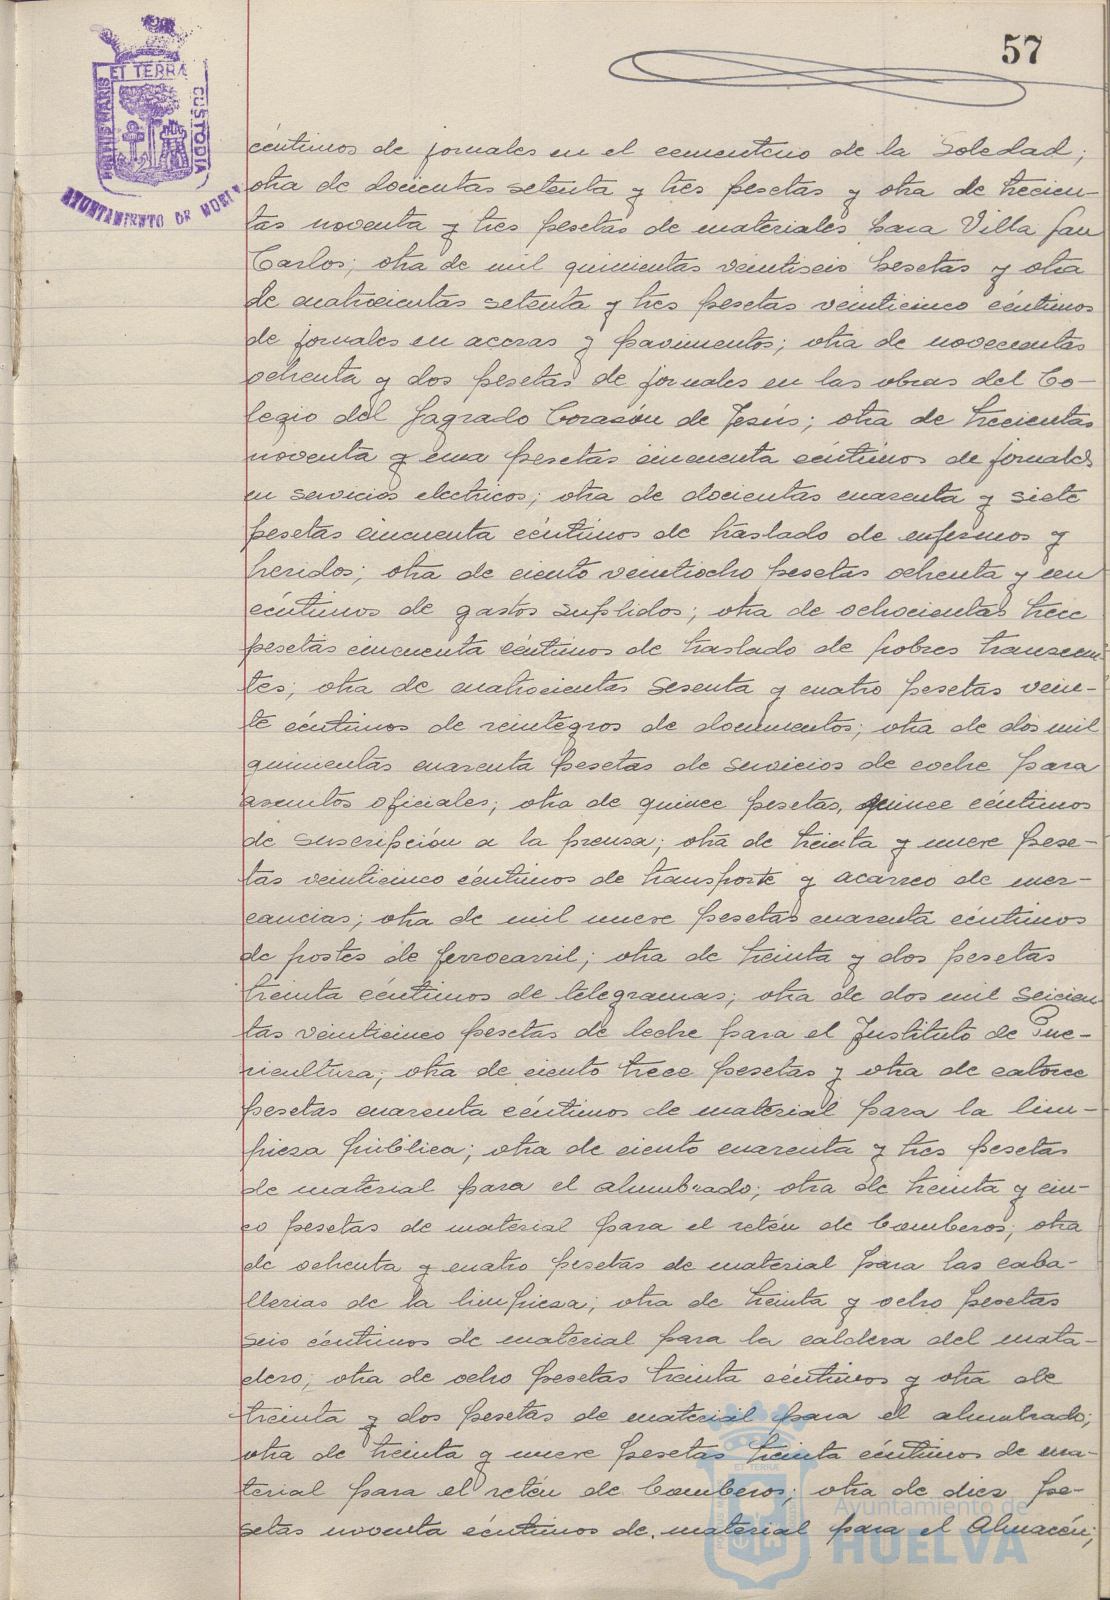 57
ET TERRA
PORTUS MARIS
CUSTODIA
AYUNTAMIENTO DE HUELV
céntimos de jornales en el cementerio de la Soledad;
otra de docientas setenta y tres pesetas y otra de trecien-
tas noventa y tres pesetas de materiales para Villa San
Carlos; otra de mil quinientas veintiseis pesetas y otra
de cuatrocientas setenta y tres pesetas veinticinco céntimos
de jornales en aceras y pavimentos; otra de novecientas
ochenta y dos pesetas de jornales en las obras del Co-
legio del Sagrado Corasón de Jesús; otra de trecientas
noventa y una pesetas cincuenta céntimos de jornales
en servicios electricos; otra de docientas cuarenta y siete
pesetas cincuenta céntimos de traslado de enfermos y
heridos; otra de ciento veintiocho pesetas ochenta y un
céntimos de gastos suplidos; otra de ochocientas trece
pesetas cincuenta céntimos de traslado de pobres transeun-
tes; otra de cuatrocientas sesenta y cuatro pesetas vein-
te céntimos de reintegros de documentos; otra de dos mil
quinientas cuarenta pesetas de servicios de coche para
asuntos oficiales; otra de quince pesetas, quince céntimos
de suscripción a la prensa; otra de treinta y nueve pese-
tas veinticinco céntimos de transporte y acarreo de mer-
cancias; otra de mil nueve pesetas cuarenta céntimos
de portes de ferrocarril; otra de treinta y dos pesetas
treinta céntimos de telegramas; otra de dos mil seicien-
tas veinticinco pesetas de leche para el Instituto de Pue-
ricultura; otra de ciento trece pesetas y otra de catorce
pesetas cuarenta céntimos de material para la lim-
pieza pública; otra de ciento cuarenta y tres pesetas
de material para el alumbrado; otra de treinta y cin-
co pesetas de material para el retén de bomberos; otra
de ochenta y cuatro pesetas de material para las caba-
llerias de la limpieza; otra de treinta y ocho pesetas
seis céntimos de material para la caldera del mata-
dero; otra de ocho pesetas treinta céntimos y otra de
treinta y dos pesetas de material para el alumbrado;
otra de treinta y nueve pesetas treinta céntimos de ma-
terial para el retén de bomberos; otra de diez pe-
setas noventa céntimos de material para el Almacén;
ET TERRA
Ayuntamiento de
HUELVA